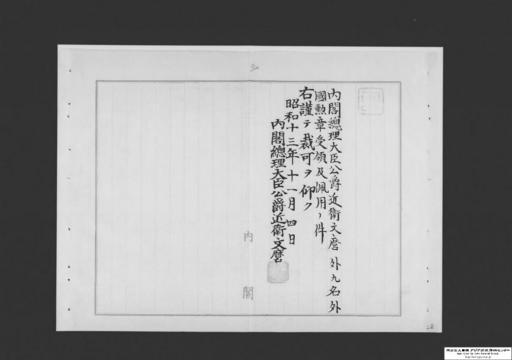 内閣總理大臣公爵近衞文麿外九名外
國勲章受領及佩用ノ件
右謹テ裁可ヲ仰ク
昭和十三年十一月四日
内閣總理大臣公爵近衞文麿
内閣